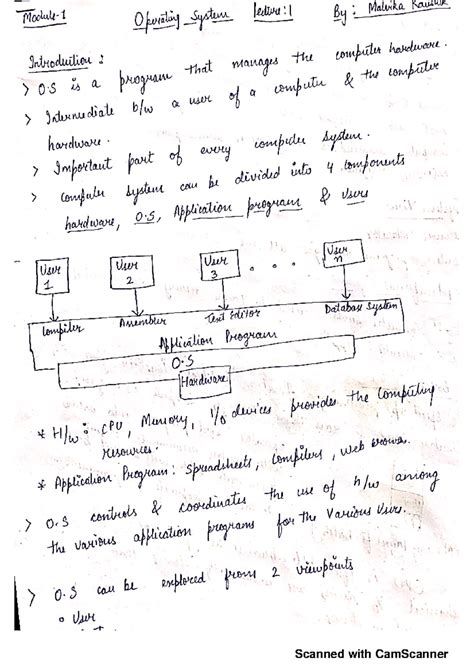 Module-1 Operating System Lecture:1 By: Malvika Kaushik
Introduction:
> O.S is a program that manages the computer hardware.
> Intermediate b/w a user of a computer & the computer
hardware.
> Important part of every computer system.
> computer system can be divided into 4 components
hardware, O.S, Application program & Users
User 1 User 2 User 3 . . . User n
Compiler Assembler Text Editor Database System
Application Program
O.S
Hardware
* H/w: CPU, Memory, I/o devices provides the Computing
resources.
* Application Program: spreadsheets, Compilers, web brows.
> O.S controls & coordinates the use of h/w among
the various application programs for the Various Users.
> O.S can be explored from 2 viewpoints
o User
Scanned with CamScanner